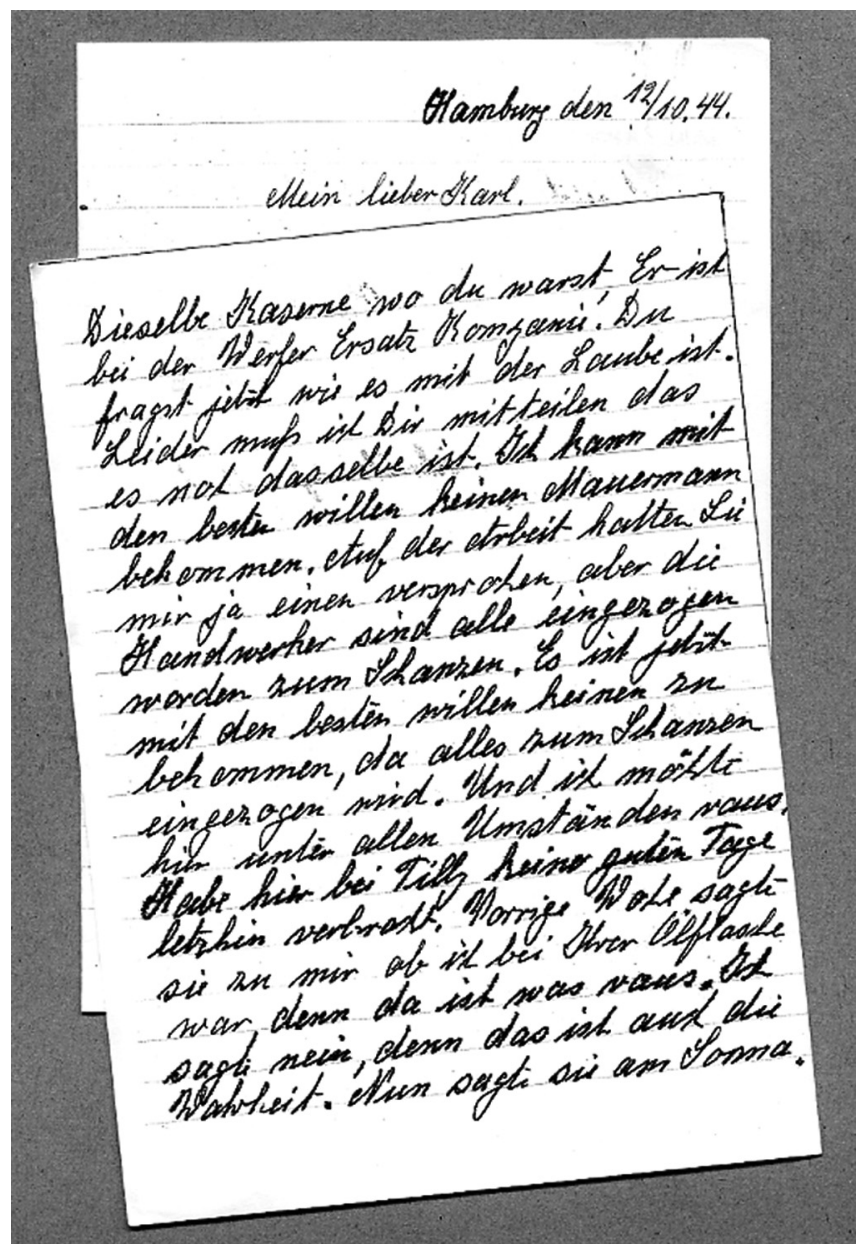 Hamburg den 12/10.44.
Mein lieber Karl.
Dieselbe Kaserne wo du warst, Er ist
bei der Werfer Ersatz Kompanie. Du
fragst jetzt wie es mit der Laube ist.
Leider muß ich Dir mitteilen das
es noch dasselbe ist. Ich kann mit
den besten willen keinen Mauermann
bekommen. Auf der Arbeit hatten Sie
mir ja einen versprochen, aber die
Handwerker sind alle eingezogen
worden zum Schanzen. Es ist jetzt
mit den besten willen keinen zu
bekommen, da alles zum Schanzen
eingezogen wird. Und ich möchte
hier unter allen Umständen raus.
Habe hier bei Tilly keine guten Tage
letzhin verbracht. Vorrige Woche sagte
sie zu mir ob ich bei Ihrer Ölflasche
war, denn da ist was raus. Ich
sagte nein, denn das ist auch die
Wahrheit. Nun sagte sie am Sonna.